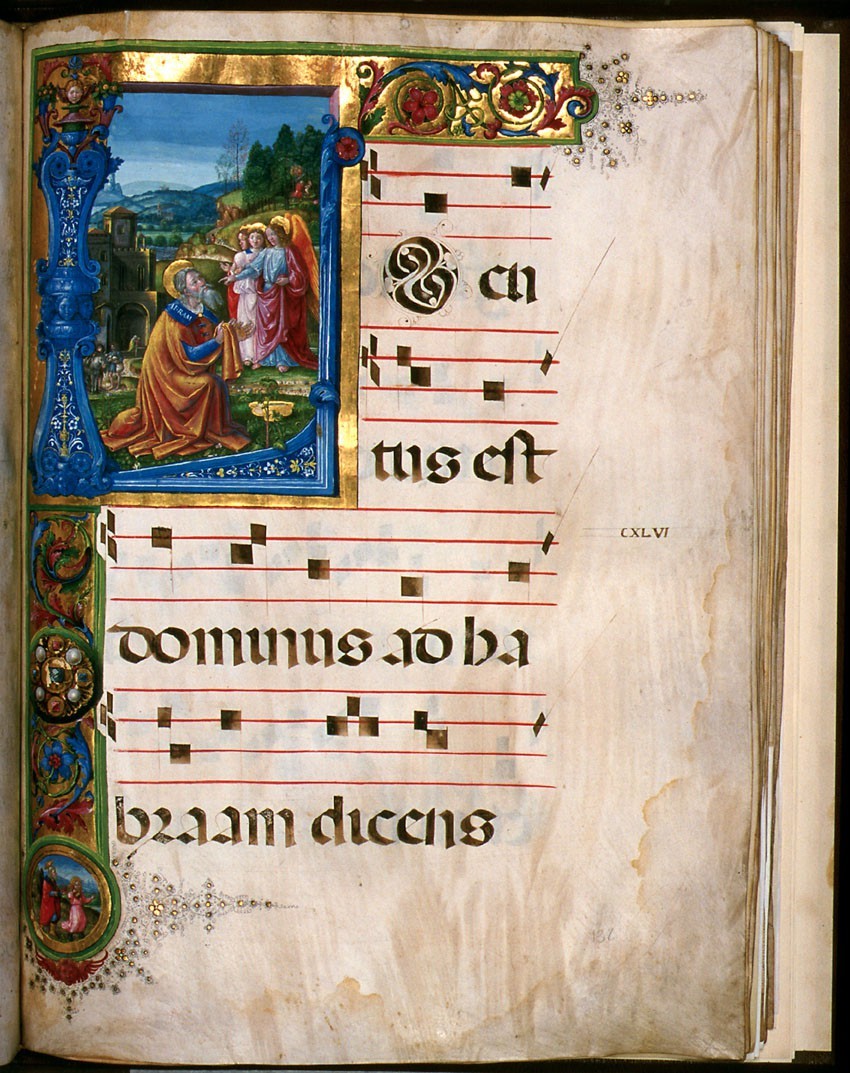 L
O cu
tus est
dominus ad ha
braam dicens
CXLVI